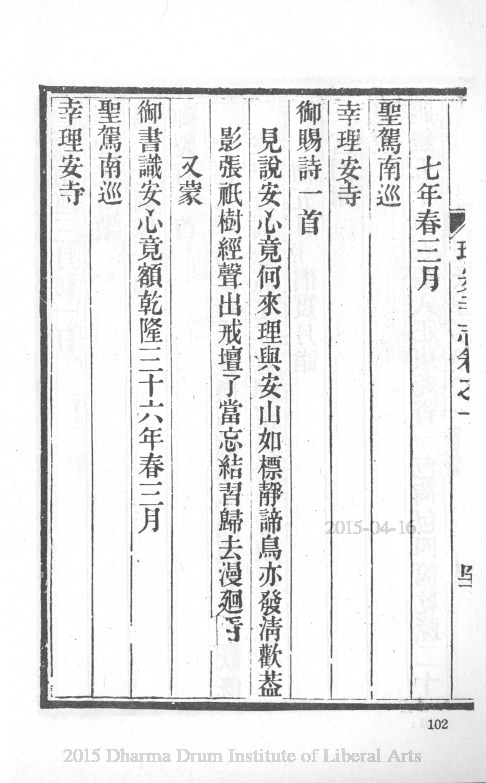 理安寺志卷之一
七年春三月
聖駕南巡
幸理安寺
御賜詩一首
見說安心竟何來理與安山如標靜諦鳥亦發清歡葢
影張祇樹經聲出戒壇了當忘結習歸去漫廻
又蒙
御書識安心竟額乾隆三十六年春三月
聖駕南巡
幸理安寺
2015-04-16
102
2015 Dharma Drum Institute of Liberal Arts